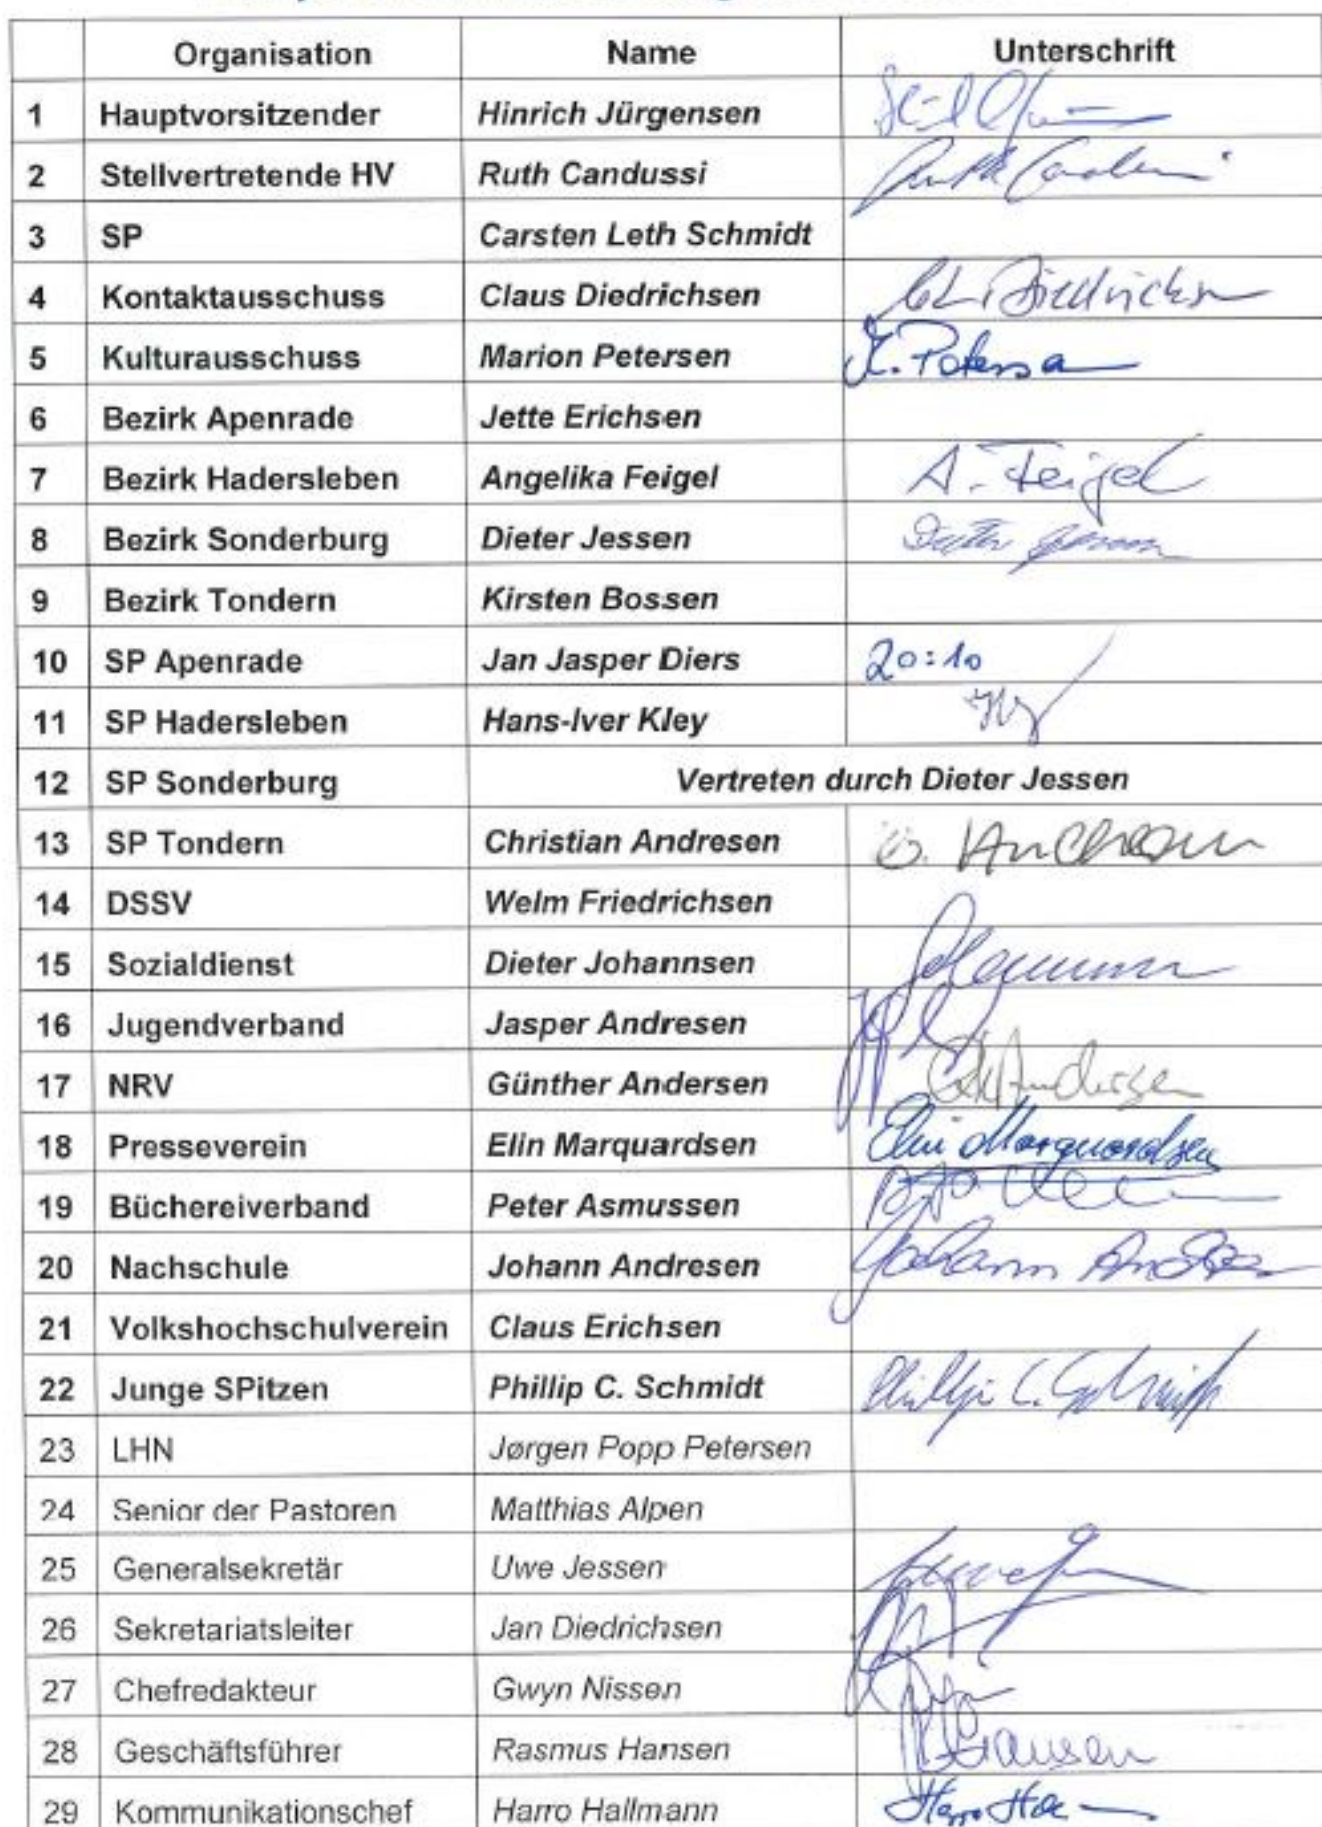 Organisation Name Unterschrift
1 Hauptvorsitzender Hinrich Jürgensen
2 Stellvertretende HV Ruth Candussi Ruth Candussi
3 SP Carsten Leth Schmidt
4 Kontaktausschuss Claus Diedrichsen Cl. Diedrichsen
5 Kulturausschuss Marion Petersen M. Petersen
6 Bezirk Apenrade Jette Erichsen
7 Bezirk Hadersleben Angelika Feigel A. Feigel
8 Bezirk Sonderburg Dieter Jessen Dieter Jessen
9 Bezirk Tondern Kirsten Bossen
10 SP Apenrade Jan Jasper Diers 20:10
11 SP Hadersleben Hans-Iver Kley
12 SP Sonderburg Vertreten durch Dieter Jessen
13 SP Tondern Christian Andresen
14 DSSV Welm Friedrichsen
15 Sozialdienst Dieter Johannsen
16 Jugendverband Jasper Andresen
17 NRV Günther Andersen
18 Presseverein Elin Marquardsen Elin Marquardsen
19 Büchereiverband Peter Asmussen
20 Nachschule Johann Andresen Johann Andresen
21 Volkshochschulverein Claus Erichsen
22 Junge SPitzen Phillip C. Schmidt Phillip C. Schmidt
23 LHN Jørgen Popp Petersen
24 Senior der Pastoren Matthias Alpen
25 Generalsekretär Uwe Jessen
26 Sekretariatsleiter Jan Diedrichsen
27 Chefredakteur Gwyn Nissen
28 Geschäftsführer Rasmus Hansen
29 Kommunikationschef Harro Hallmann